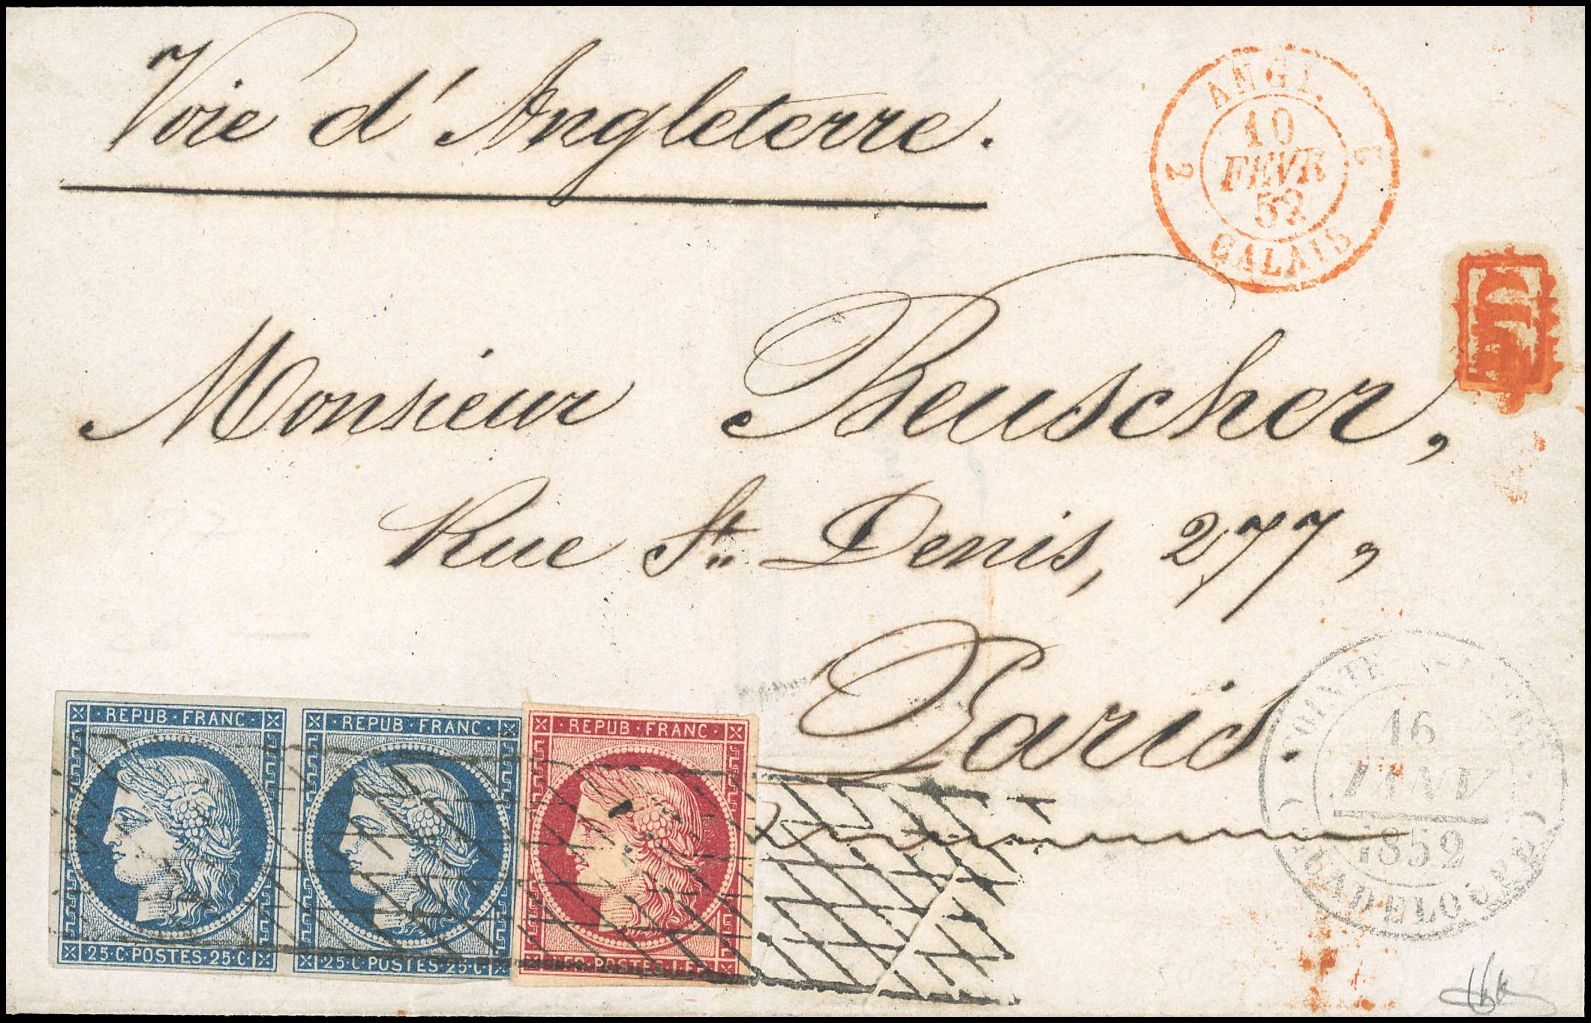 Voie d'Angleterre.
ANGL.
2 10 2
FEVR
52
CALAIS
PD
Monsieur Beuscher,
Rue St. Denis, 277,
Paris.
POINTE
16
JANV
1852
GUADELOUPE
REPUB·FRANC REPUB·FRANC REPUB·FRANC
25·C·POSTES·25·C 25·C·POSTES·25·C POSTES·1·FR